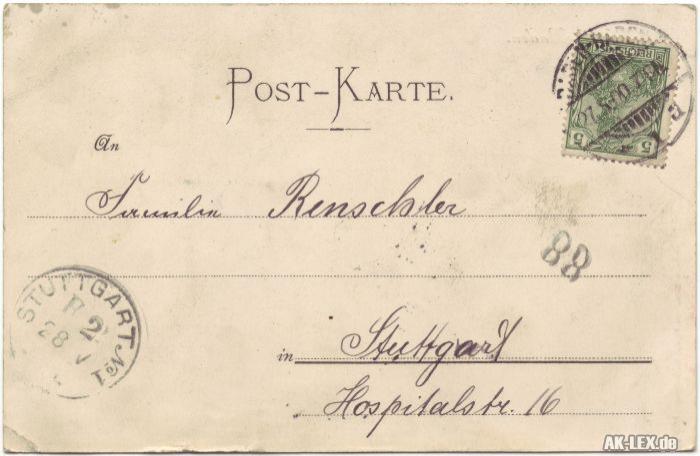 POST-KARTE.
An
Familie Renschler
88
STUTTGART No 1
2
28 V
in Stuttgart
Hospitalstr. 16
5 5
AK-LEX.de